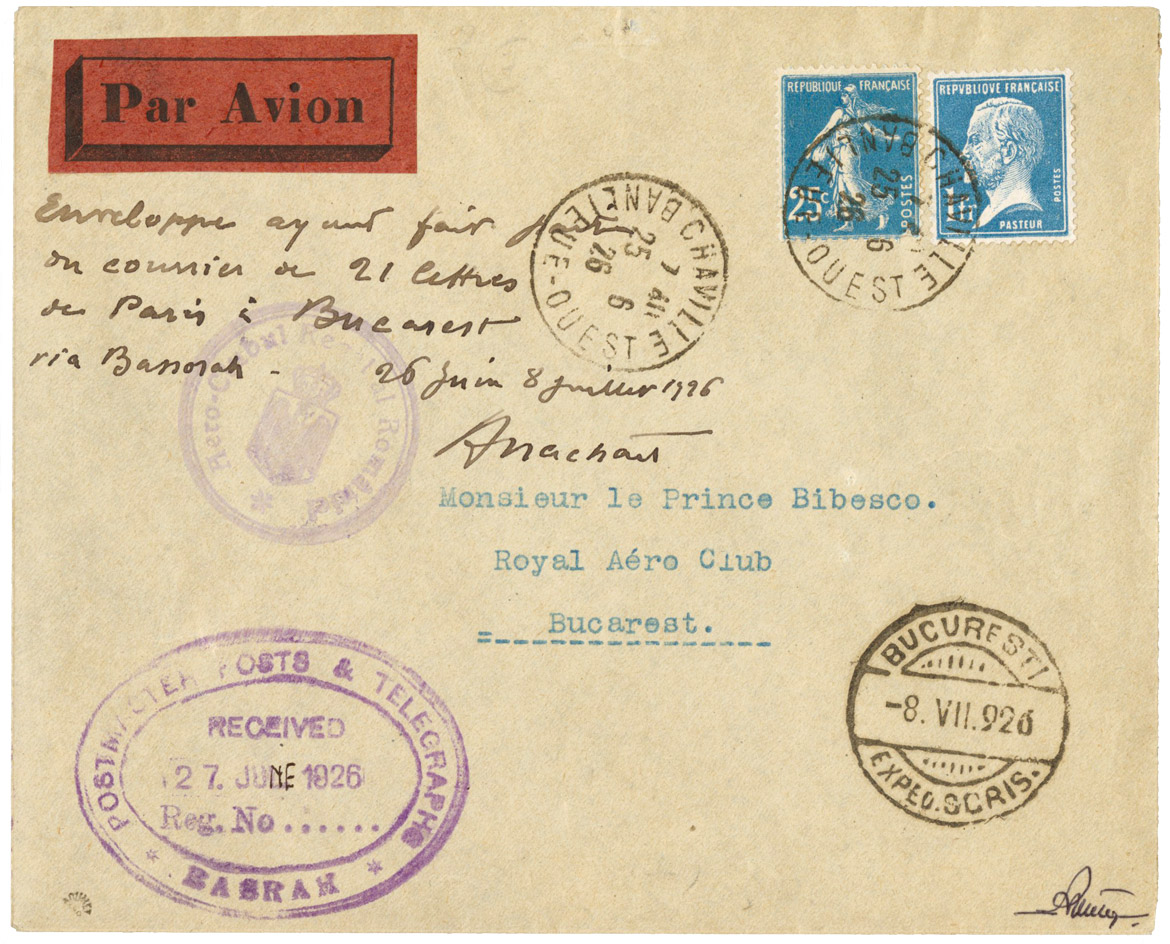 Par Avion
REPUBLIQUE FRANÇAISE
25c
POSTES
REPVBLIQUE FRANÇAISE
1F
POSTES
PASTEUR
CHAVILLE BANLIEUE-OUEST
25
6
26
CHAVILLE BANLIEUE-OUEST
7
25
6
26
Enveloppe ayant fait
du courrier de 21 lettres
de Paris à Bucarest
via Bassorah -
26 Juin 8 Juillet 1926
Aero-Clubul Regal al României
Monsieur le Prince Bibesco.
Royal Aéro Club
Bucarest.
POSTMASTER POSTS & TELEGRAPHS
RECEIVED
27. JUNE 1926
Reg. No......
* BASRAH *
BUCURESTI
-8. VII.926
EXPED.SCRIS.